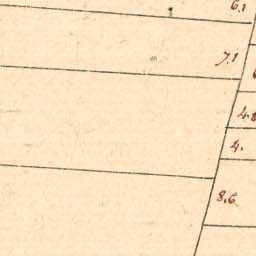 6.1
7.1
4.8
4.
8.6